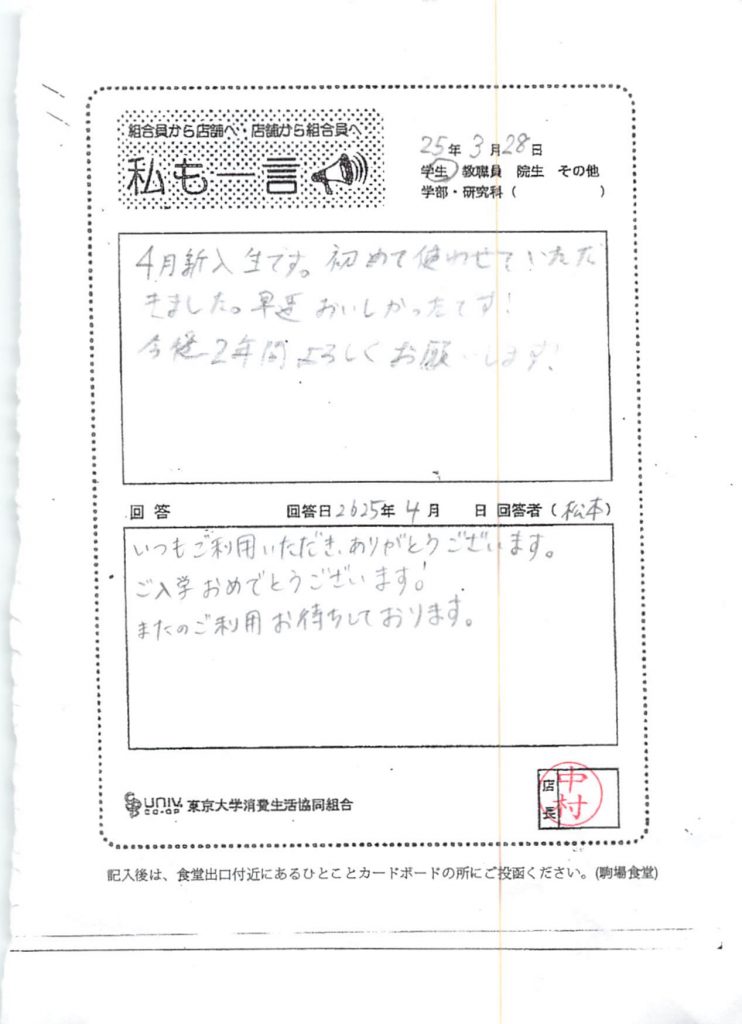 組合員から店舗へ・店舗から組合員へ
私も一言
25年 3月28日
学生 教職員 院生 その他
学部・研究科（　　　）
4月新入生です。初めて使わせていただ
きました。早速おいしかったです！
今後2年間よろしくお願いします！
回答 回答日2025年 4月 日 回答者（松本）
いつもご利用いただき、ありがとうございます。
ご入学おめでとうございます！
またのご利用お待ちしております。
UNIV. CO-OP 東京大学消費生活協同組合
店長 中村
記入後は、食堂出口付近にあるひとことカードボードの所にご投函ください。(駒場食堂)